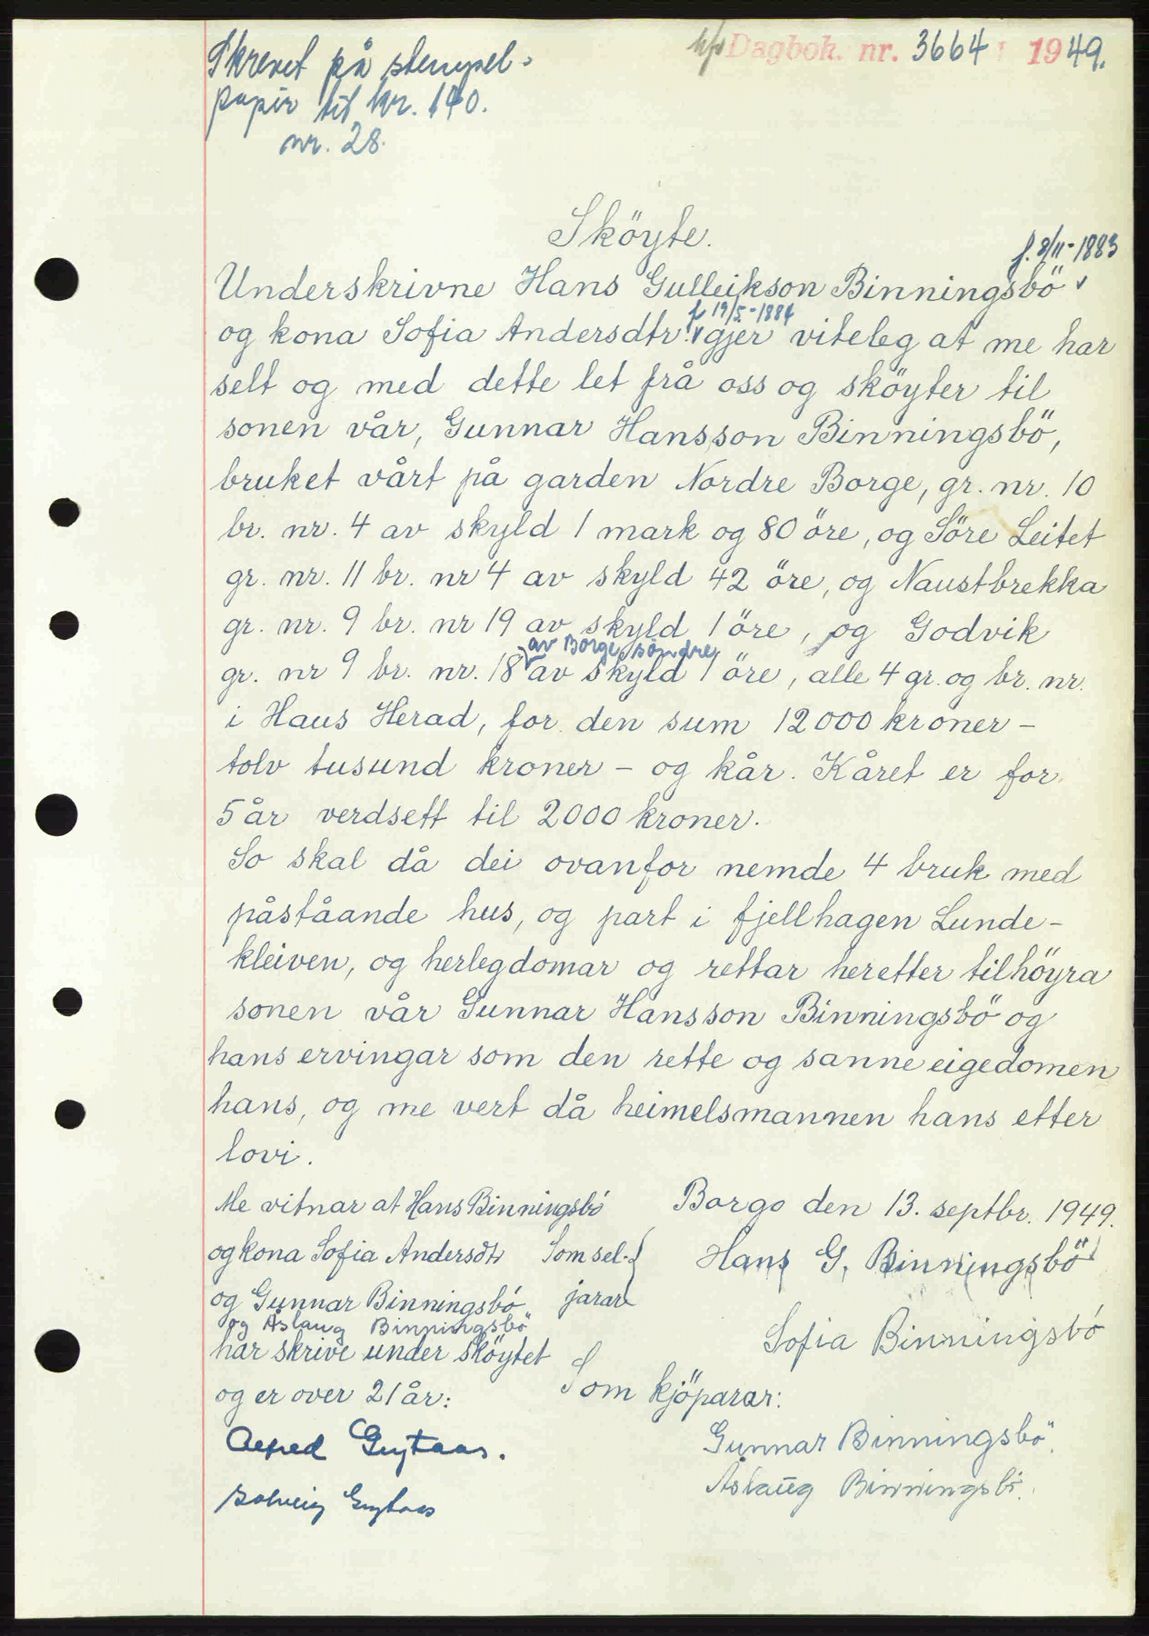 Skrevet på stempel-
papir til kr. 140.
nr. 28.
Dagbok. nr. 3664 1949.
Sköyte.
f. 8/11-1883
Underskrivne Hans Gulleikson Binningsbö
f 19/5-1884
og kona Sofia Andersdtr. gjer viteleg at me har
selt og med dette let frå oss og sköyter til
sonen vår, Gunnar Hansson Binningsbö,
bruket vårt på garden Nordre Borge, gr. nr. 10
br. nr. 4 av skyld 1 mark og 80 öre, og Söre Leitet
gr. nr. 11 br. nr 4 av skyld 42 öre, og Naustbrekka
gr. nr. 9 br. nr 19 av skyld 1 öre, og Godvik
av Borge söndre
gr. nr 9 br. nr. 18 av skyld 1 öre, alle 4 gr. og br. nr.
i Haus Herad, for den sum 12000 kroner -
tolv tusund kroner - og kår. Kåret er for
5 år verdsett til 2000 kroner.
So skal då dei ovanfor nemde 4 bruk med
påståande hus, og part i fjellhagen Lunde-
kleiven, og herlegdomar og rettar heretter tilhöyra
sonen vår Gunnar Hansson Binningsbö og
hans ervingar som den rette og sanne eigedomen
hans, og me vert då heimelsmannen hans etter
lovi.
Me vitnar at Hans Binningsbö
og kona Sofia Andersdtr
og Gunnar Binningsbö
og Åslaug Binningsbö
har skrive under sköytet
og er over 21 år:
Alfred Grytaas.
Solveig Grytaas
Borge den 13. septbr. 1949.
Som sel-
jarar
Hans G. Binningsbö
Sofia Binningsbö
Som kjöparar:
Gunnar Binningsbö.
Åslaug Binningsbö.